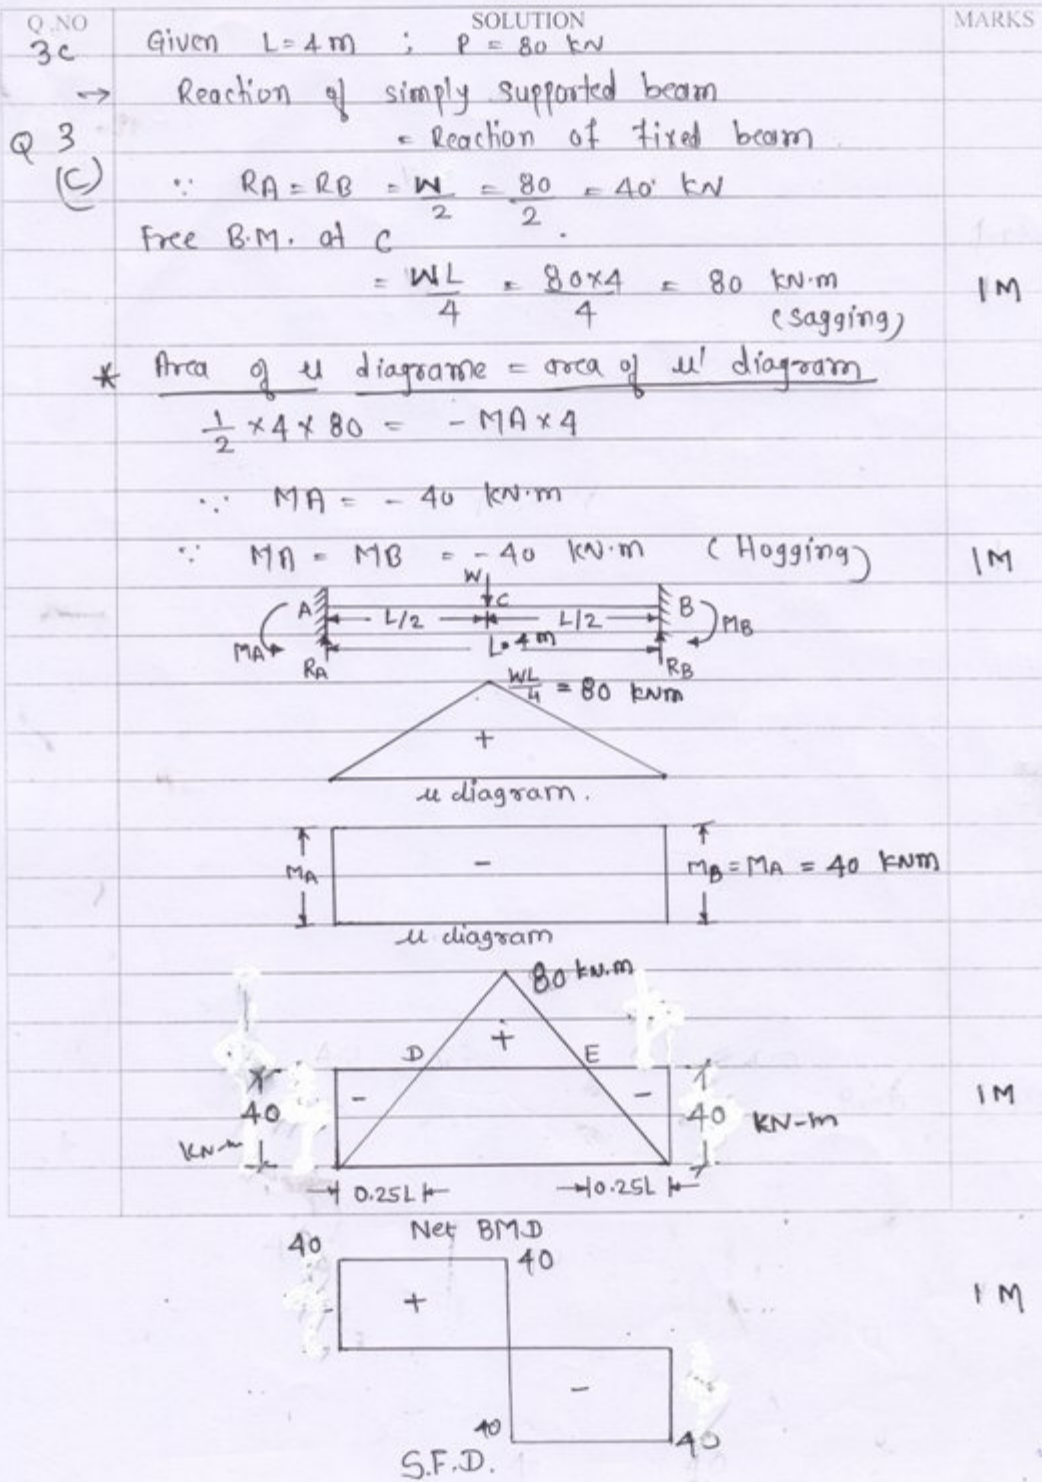 Q.NO SOLUTION MARKS
3c Given L = 4 m ; P = 80 kN
→ Reaction of simply supported beam
Q 3 = Reaction of fixed beam
(C) ∵ RA = RB = W/2 = 80/2 = 40 kN
Free B.M. at C
= WL/4 = 80×4/4 = 80 kN·m 1M
(sagging)
* Area of u diagrame = area of u' diagram
1/2 × 4 × 80 = - MA × 4
∴ MA = - 40 kN·m
∵ MA = MB = - 40 kN·m (Hogging) 1M
W
A C B
L/2 L/2
MA L = 4 m MB
RA RB
WL/4 = 80 kNm
+
u diagram.
MA - MB = MA = 40 kNm
u diagram
80 kN.m
D + E
- -
40 40 kN-m 1M
kN-m
0.25L 0.25L
Net BMD
40 40
+ 1M
-
40 40
S.F.D.